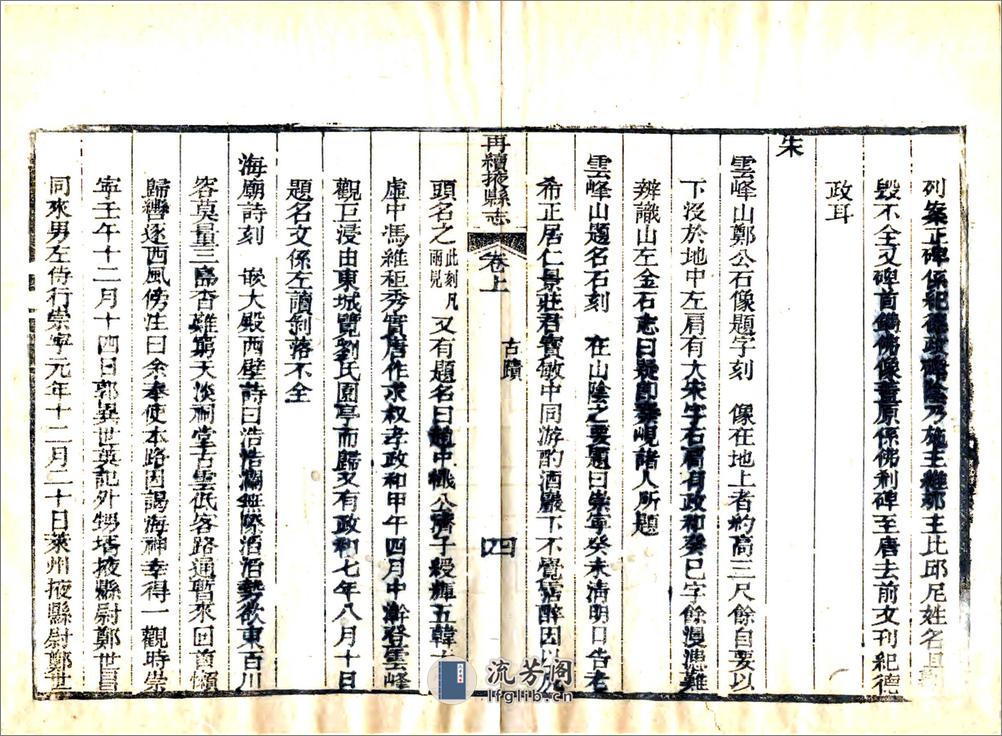 列案正碑係紀德政碑陰乃施主維那主比邱尼姓名且
毀不全又碑首鐫佛像蓋原係佛刹碑至唐去前文刊紀德
政耳
朱
雲峰山鄭公石像題字刻 像在地上者約高三尺餘自要以
下沒於地中左肩有大宋字右肩有政和癸巳字餘漫漶難
辨識山左金石志曰疑即秦峴諸人所題
雲峰山題名石刻 在山陰之要題曰崇寧癸未清明日告老
希正居仁景莊君寶敏中同游酌酒巖下不覺 醉因以
再續掖縣志 卷上 古蹟 四
頭名之此刻凡兩見又有題名曰趙中 公濟子 輝五韓
虛中馮維秬秀實唐作求权孝政和甲午四月中澣登雲峰
觀巨浸由東城覽劉氏園亭而歸又有政和七年八月十日
題名文係左讀剝落不全
海廟詩刻 嵌大殿西壁詩曰浩浩瀾無際滔滔勢欲東百川
容莫量三島杳難窮天淡祠堂古雲低客路通暫來回首懶
歸轡逐西風傍注曰余奉使本路因謁海神幸得一觀時崇
寧壬午十二月十四日郭異世英記外甥壻掖縣尉鄭世昌
同來男左侍行崇寧元年十二月二十日萊州掖縣尉鄭世
流芳阁
lfglib.cn